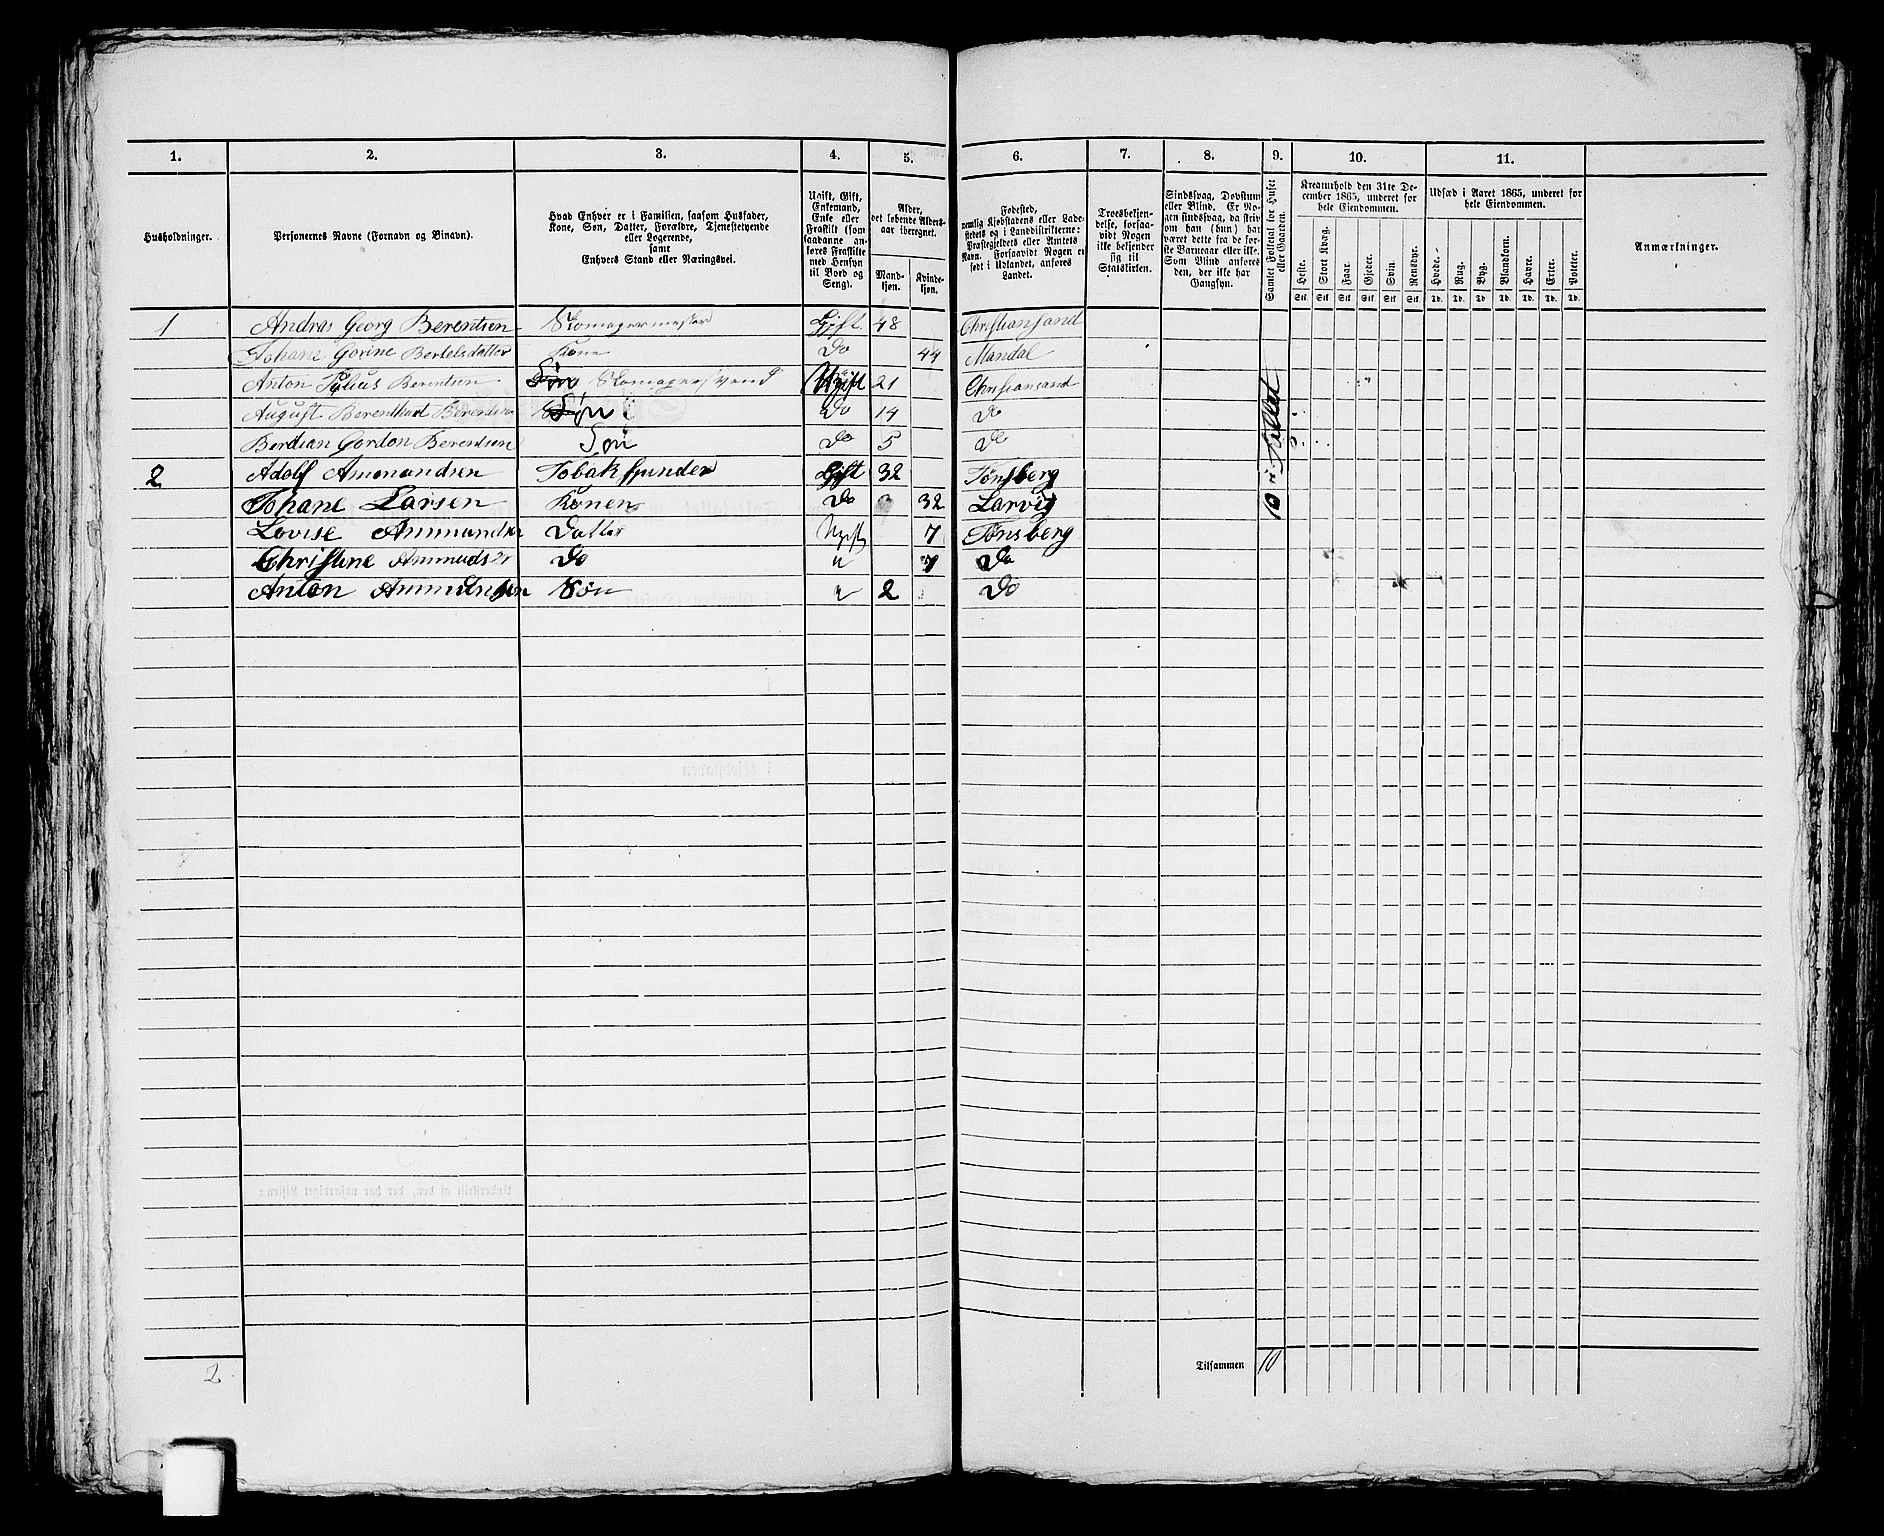 1. 2. 3. 4. 5. 6. 7. 8. 9. 10. 11.
Husholdninger.
Personernes Navne (Fornavn og Binavn).
Hvad Enhver er i Familien, saasom Husfader,
Kone, Søn, Datter, Forældre, Tjenestetyende
eller Logerende,
samt
Enhvers Stand eller Næringsvei.
Ugift, Gift,
Enkemand,
Enke eller
Fraskilt (som
saadanne an-
føres Fraskilte
med Hensyn
til Bord og
Seng).
Alder,
det løbende Alders-
aar iberegnet.
Mand-
kjøn.
Kvinde-
kjøn.
Fødested,
nemlig Kjøbstadens eller Lade-
stedets og i Landdistrikterne:
Præstegjeldets eller Amtets
Navn. Forsaavidt Nogen er
født i Udlandet, anføres
Landet.
Troesbekjen-
delse, forsaa-
vidt Nogen
ikke bekjender
sig til
Statskirken.
Sindssvag, Døvstum
eller Blind. Er No-
gen sindssvag, da skriv
om han (hun) har
været dette fra de før-
ste Barneaar eller ikke.
Som Blind anføres
den, der ikke har
Gangsyn.
Samlet Folketal for Huset
eller Gaarden.
Kreaturhold den 31te De-
cember 1865, underet for
hele Eiendommen.
Heste. Stort Kvæg. Faar. Gjeder. Svin. Rensdyr.
Stk. Stk. Stk. Stk. Stk. Stk.
Udsæd i Aaret 1865, underet for
hele Eiendommen.
Hvede. Rug. Byg. Blandkorn. Havre. Erter. Poteter.
Td. Td. Td. Td. Td. Td. Td.
Anmærkninger.
1 Andras Georg Berentsen Skomagermester Gift. 48 Christiansand
Johane Gorine Bertelsdatter Kone Do 44 Mandal
Anton Julius Berentsen Søn Skomagersvend Ugift 21 Christiansand
August Berenthard Berentsen Søn Do 14 Do
Berdian Gordon Berentsen Søn Do 5 Do
2 Adolf Ammundsen Tobakspinder Gift 32 Tønsberg
Johane Larsen Konen Do 32 Larvig
Lovise Ammundsen Datter Ugift 7 Tønsberg
Christine Ammuds Do u 7 Do
Anton Ammundsen Søn u 2 Do
10
2 Tilsammen 10